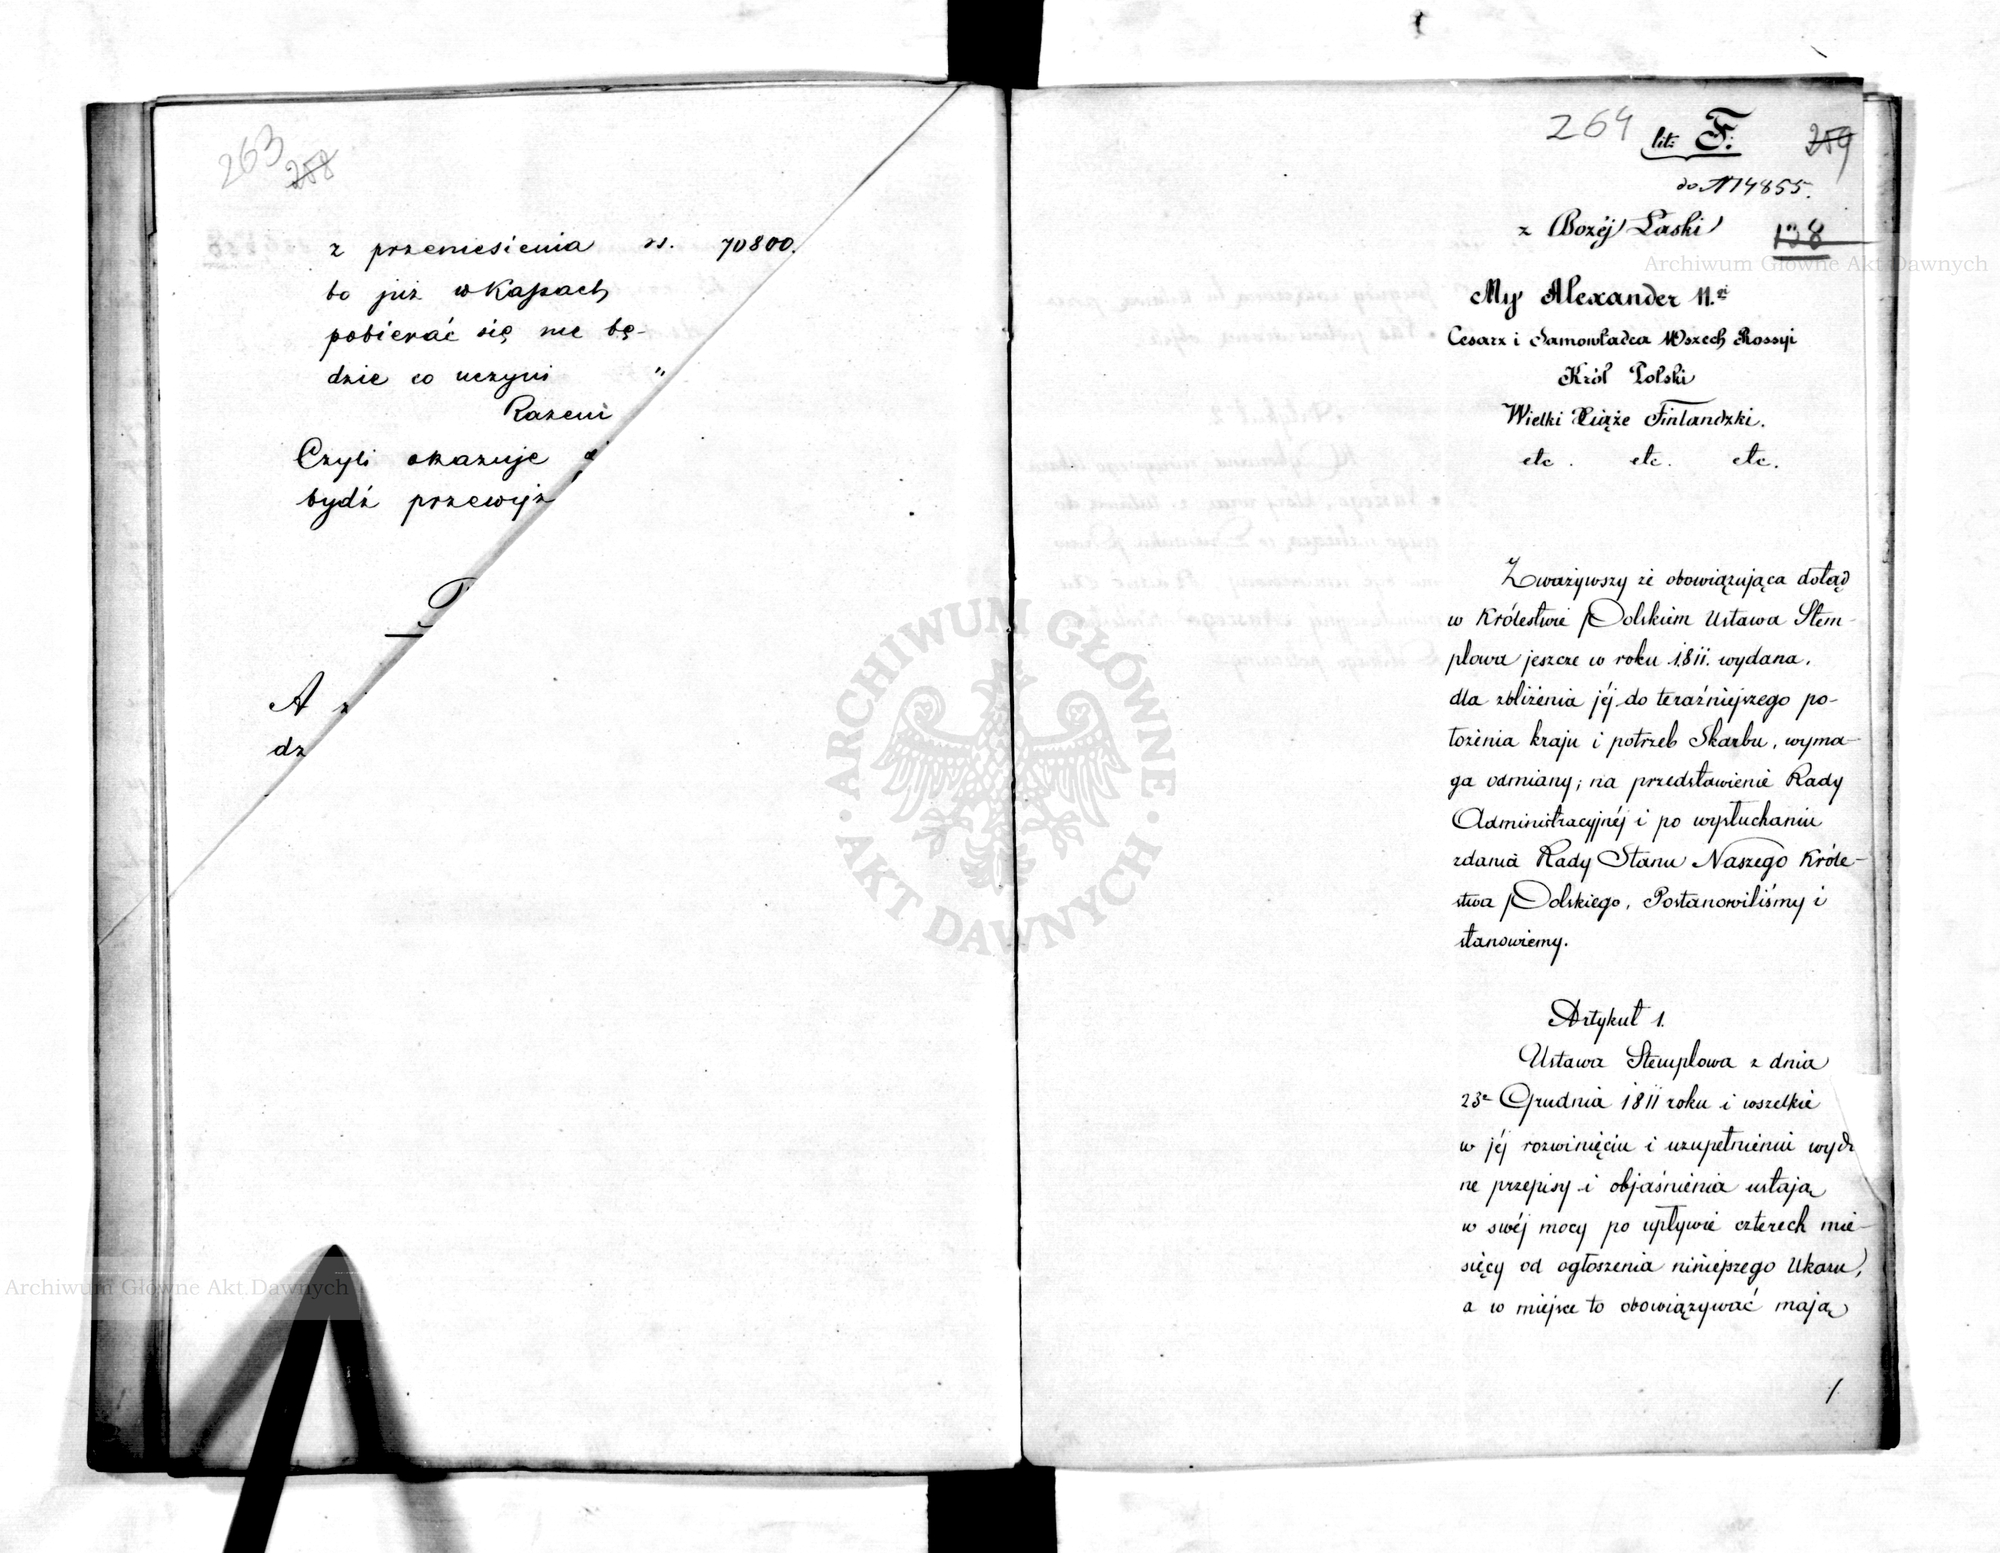 263
258
z przeniesienia rs. 70800.
bo już w Kassach
pobierać się nie bę-
dzie co uczyni "
Razem
Czyli okazuje
bydź przewyż
A z
dz
264 lit: F: 259
do N 14855.
z Bożéj Łaski
138
My Alexander II.gi
Cesarz i Samowładca Wszech Rossyi
Król Polski
Wielki Xiąże Finlandzki.
etc. etc. etc.
Zważywszy że obowiązująca dotąd
w Królestwie Polskiem Ustawa Stem-
plowa jeszcze w roku 1811. wydana,
dla zbliżenia jéj do teraźniejszego po-
łożenia kraju i potrzeb Skarbu, wyma-
ga odmiany; na przedstawienie Rady
Administracyjnéj i po wysłuchaniu
zdania Rady Stanu Naszego Króle-
stwa Polskiego, Postanowiliśmy i
stanowiemy.
Artykuł 1.
Ustawa Stemplowa z dnia
23o Grudnia 1811 roku i wszelkie
w jéj rozwinięciu i uzupełnieniu wyda
ne przepisy i objaśnienia ustają
w swéj mocy po upływie czterech mie-
sięcy od ogłoszenia niniejszego Ukazu,
a w miejsce to obowiązywać mają
1
ARCHIWUM GŁÓWNE
AKT DAWNYCH
Archiwum Główne Akt Dawnych
Archiwum Główne Akt Dawnych